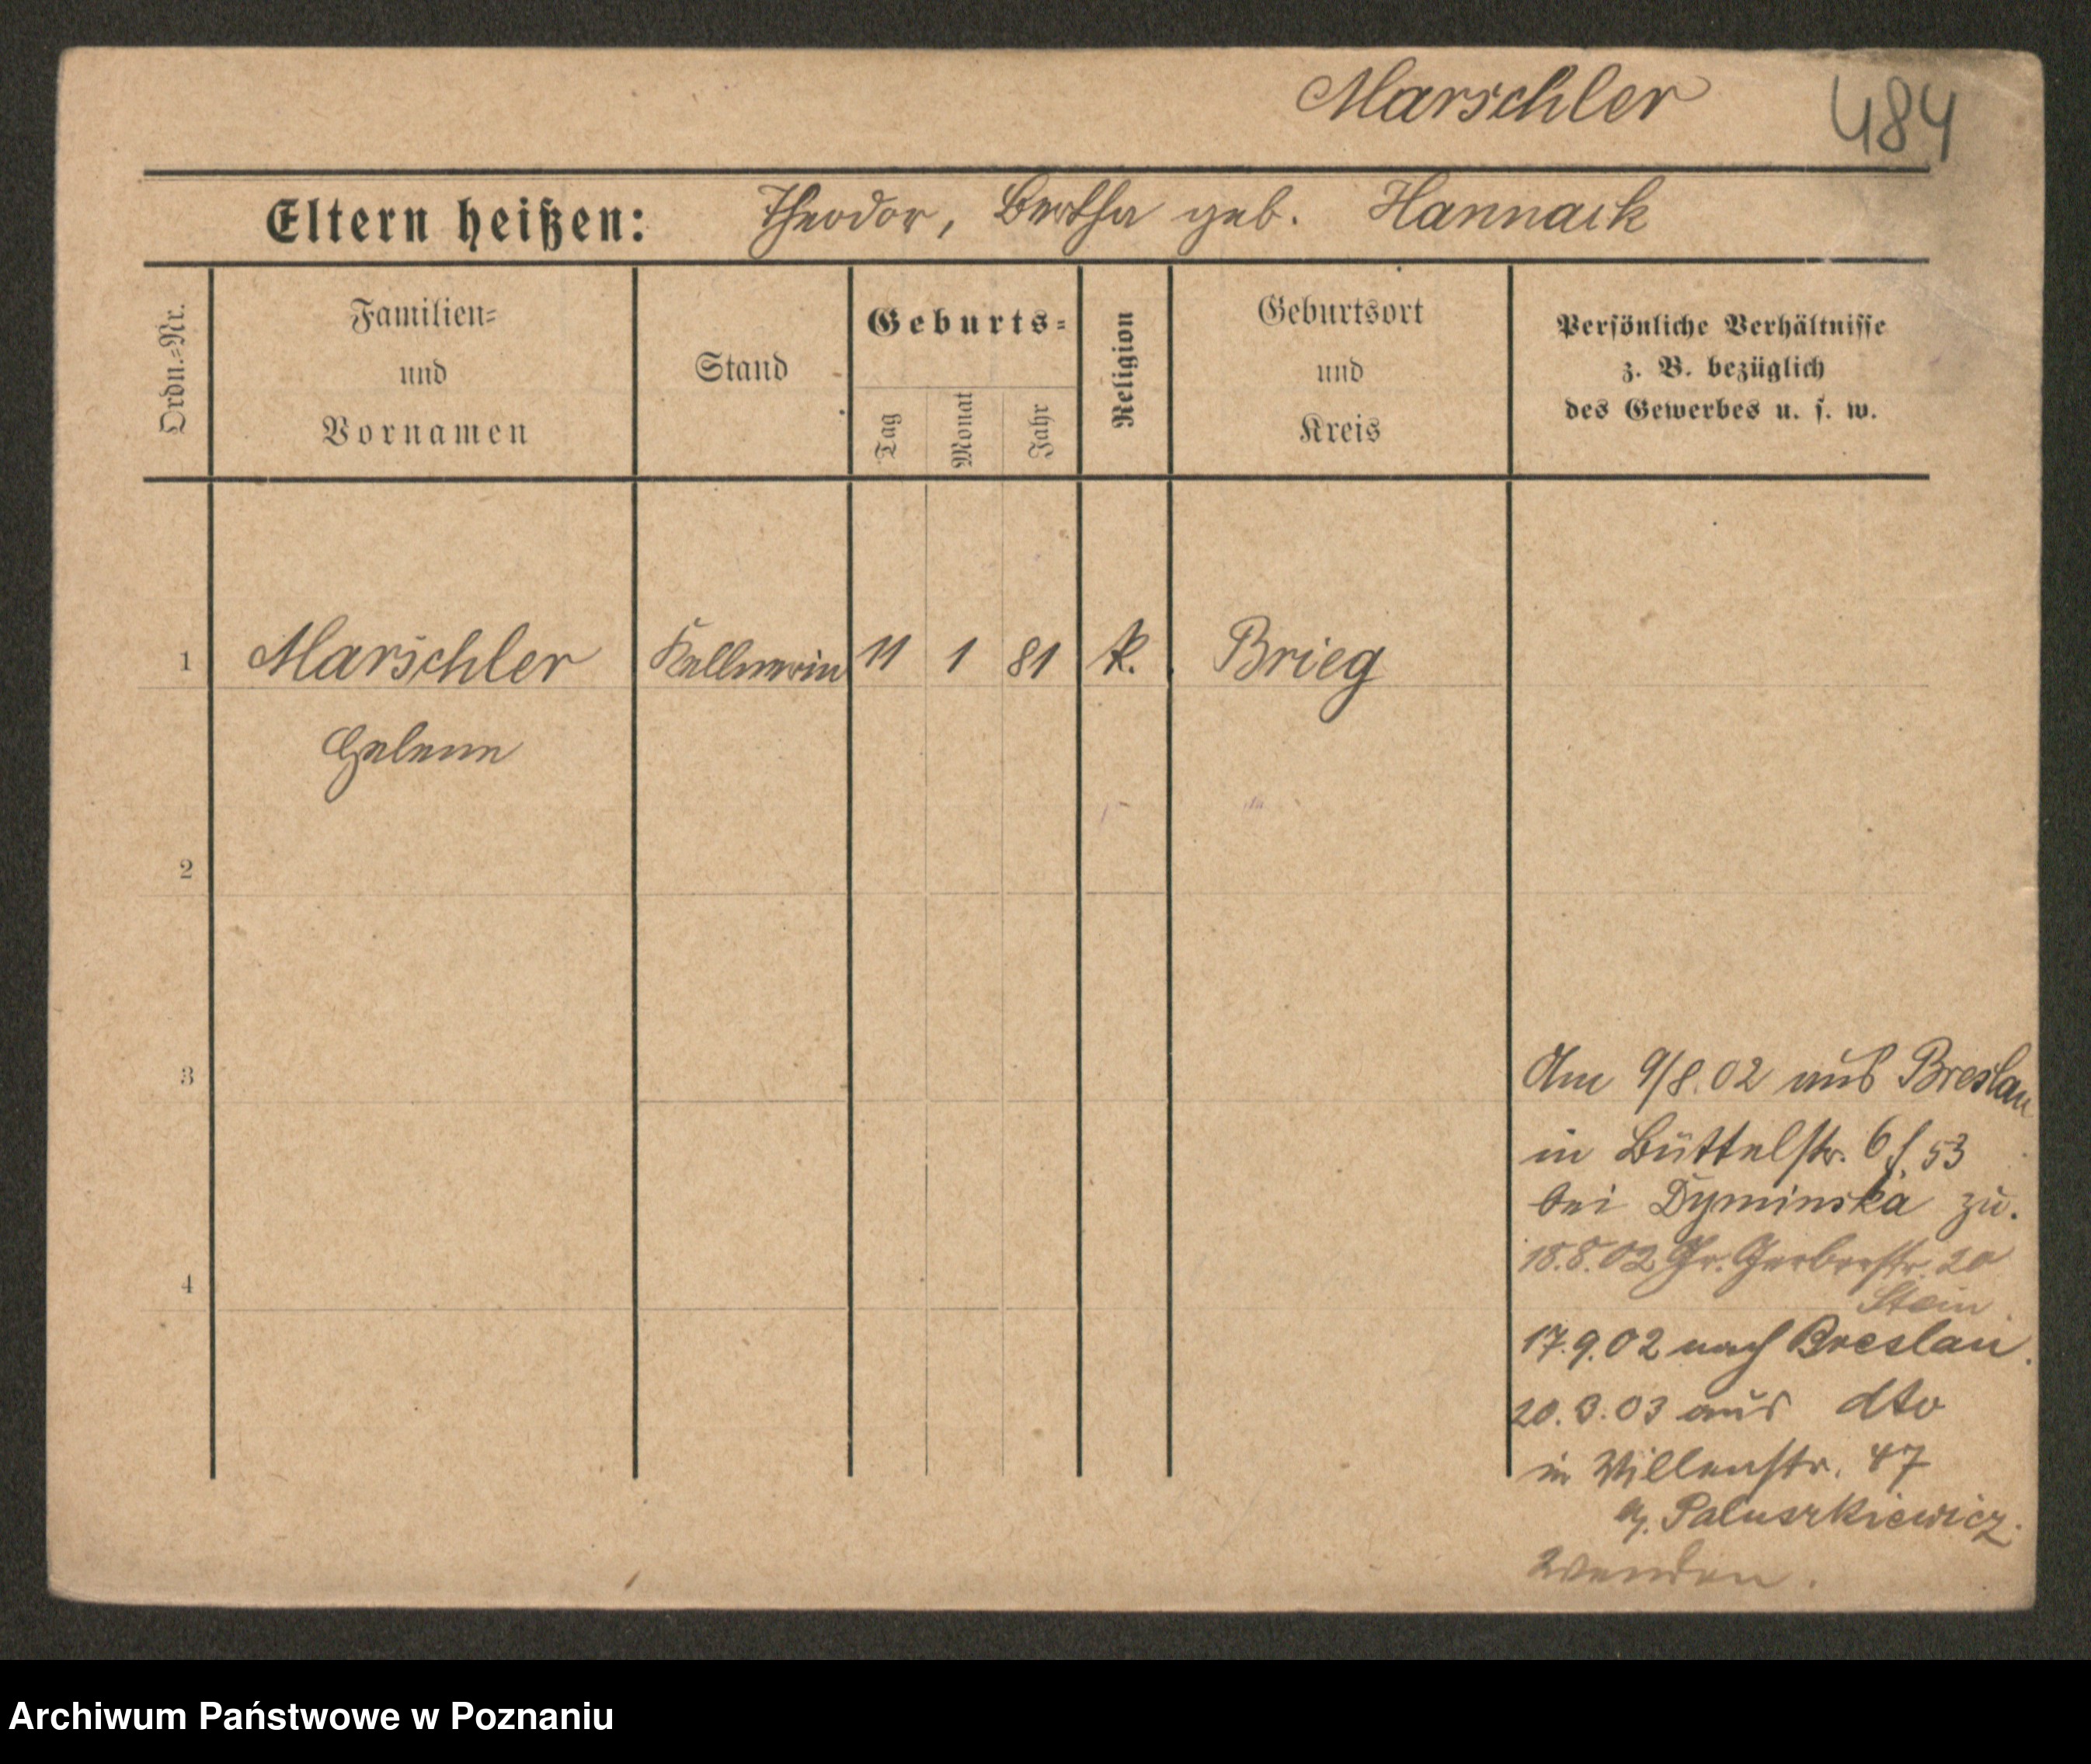 Marschler
484
Eltern heißen: Theodor, Bertha geb. Hannack
Ordn.=Nr.
Familien=
und
Vornamen
Stand
Geburts=
Tag
Monat
Jahr
Religion
Geburtsort
und
Kreis
Persönliche Verhältnisse
z. B. bezüglich
des Gewerbes u. s. w.
1 Marschler Kellnerin 11 1 81 k. Brieg
Helene
2
3
4
Am 9/8.02 aus Breslau
in Büttelstr. 6 f. 53
bei Dyminska zu.
18.8.02 Gr. Gerberstr. 20
Stein
17.9.02 nach Breslau.
20.3.03 aus dto
in Villenstr. 47
Paluszkiewicz.
Wenden.
Archiwum Państwowe w Poznaniu